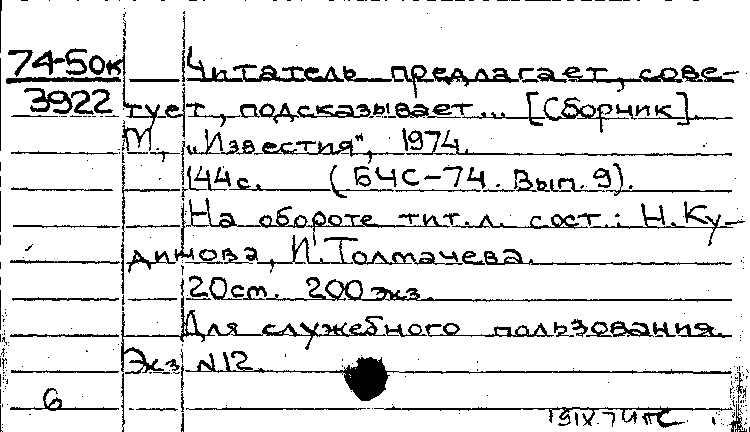 74-50к Читатель предлагает, сове-
3922 тует, подсказывает... [Сборник].
М., „Известия", 1974.
144с. (БЧС-74. Вып. 9).
На обороте тит. л. сост.: Н. Ку-
динова, И. Толмачева.
20 см. 200 экз.
Для служебного пользования.
Экз N12.
6